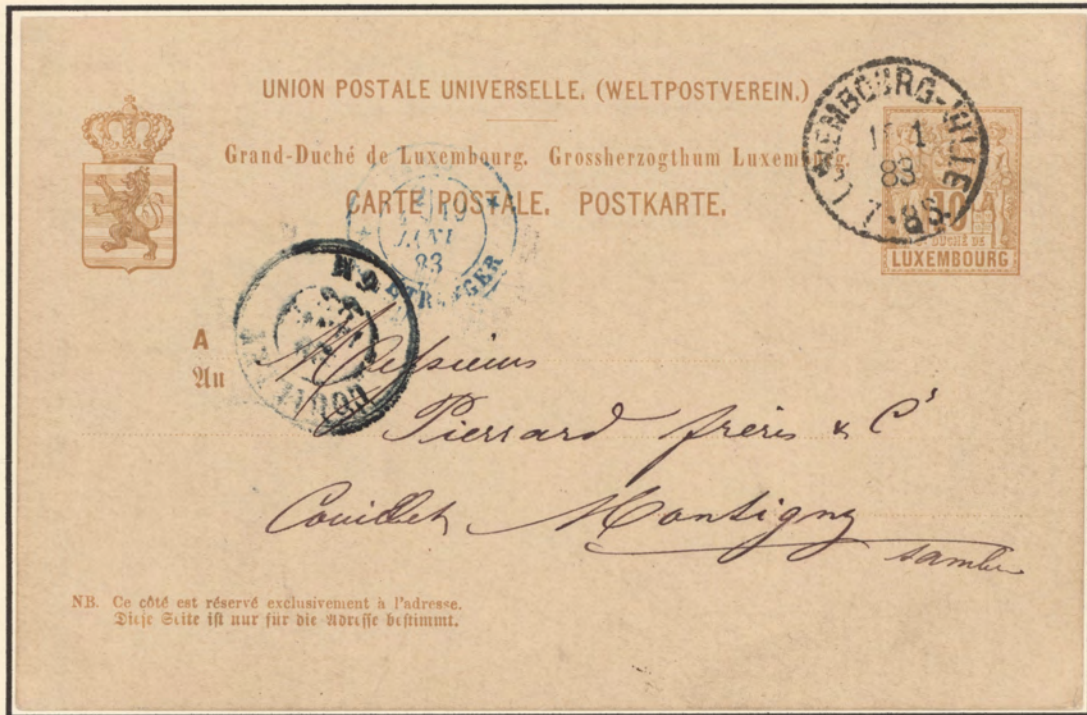 UNION POSTALE UNIVERSELLE. (WELTPOSTVEREIN.)
Grand-Duché de Luxembourg. Grossherzogthum Luxembourg.
CARTE POSTALE. POSTKARTE.
LUXEMBOURG-VILLE
83
7-8S.
10
GD DUCHÉ DE
LUXEMBOURG
19
JANV
83
ETRANGER
COUILLET
A
Au
Messieurs
Pierrard frères & Cᵉ
Couillet Montigny
sambre
NB. Ce côté est réservé exclusivement à l'adresse.
Diese Seite ist nur für die Adresse bestimmt.